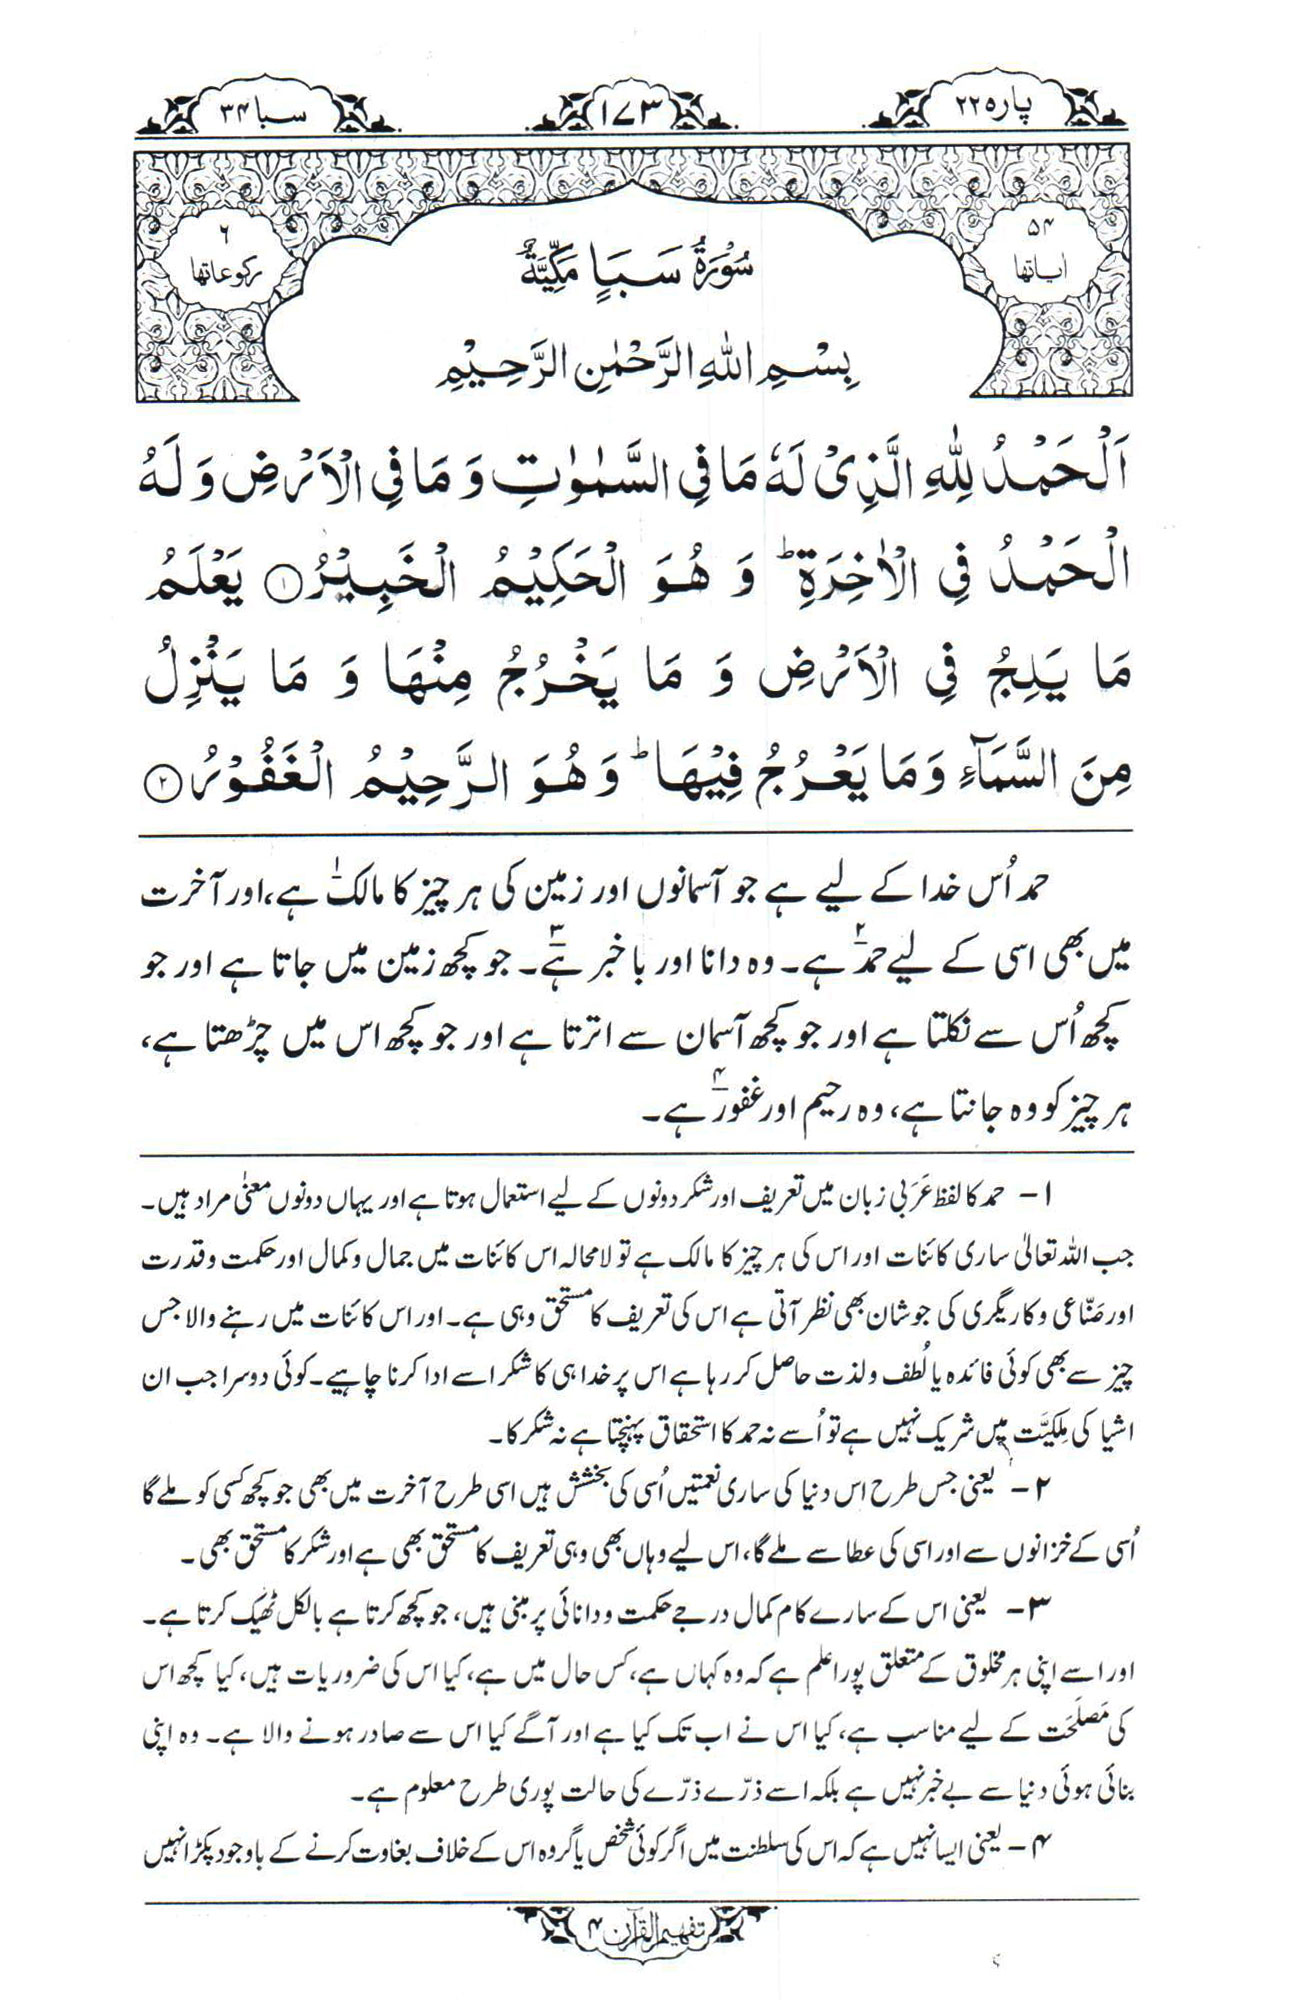 پارہ ۲۲
۱۷۳
سبا ۳۴
۵۴
اٰیاتھا
سُوْرَةُ سَبَاٍ مَکِّیَّةٌ
۶
رکوعاتھا
بِسْمِ اللهِ الرَّحْمٰنِ الرَّحِيْمِ
اَلْحَمْدُ لِلّٰهِ الَّذِىْ لَهٗ مَا فِى السَّمٰوٰتِ وَ مَا فِى الْاَرْضِ وَ لَهُ
الْحَمْدُ فِى الْاٰخِرَةِ ؕ وَ هُوَ الْحَكِيْمُ الْخَبِيْرُ ۱ يَعْلَمُ
مَا يَلِجُ فِى الْاَرْضِ وَ مَا يَخْرُجُ مِنْهَا وَ مَا يَنْزِلُ
مِنَ السَّمَآءِ وَ مَا يَعْرُجُ فِيْهَا ؕ وَ هُوَ الرَّحِيْمُ الْغَفُوْرُ ۲
حمد اُس خدا کے لیے ہے جو آسمانوں اور زمین کی ہر چیز کا مالک۱ ہے، اور آخرت
میں بھی اسی کے لیے حمد۲ ہے۔ وہ دانا اور باخبر ہے۳۔ جو کچھ زمین میں جاتا ہے اور جو
کچھ اُس سے نکلتا ہے اور جو کچھ آسمان سے اترتا ہے اور جو کچھ اس میں چڑھتا ہے،
ہر چیز کو وہ جانتا ہے، وہ رحیم اور غفور۴ ہے۔
۱ - حمد کا لفظ عَرَبی زبان میں تعریف اور شکر دونوں کے لیے استعمال ہوتا ہے اور یہاں دونوں معنیٰ مراد ہیں۔
جب اللہ تعالیٰ ساری کائنات اور اس کی ہر چیز کا مالک ہے تو لامحالہ اس کائنات میں جمال و کمال اور حکمت و قدرت
اور صَنّاعی و کاریگری کی جو شان بھی نظر آتی ہے اس کی تعریف کا مستحق وہی ہے۔ اور اس کائنات میں رہنے والا جس
چیز سے بھی کوئی فائدہ یا لُطف و لذت حاصل کر رہا ہے اس پر خدا ہی کا شکر اسے ادا کرنا چاہیے۔ کوئی دوسرا جب ان
اشیا کی مِلکیَّت میں شریک نہیں ہے تو اُسے نہ حمد کا استحقاق پہنچتا ہے نہ شکر کا۔
۲ - یعنی جس طرح اس دنیا کی ساری نعمتیں اُسی کی بخشش ہیں اسی طرح آخرت میں بھی جو کچھ کسی کو ملے گا
اُسی کے خزانوں سے اور اسی کی عطا سے ملے گا، اس لیے وہاں بھی وہی تعریف کا مستحق بھی ہے اور شکر کا مستحق بھی۔
۳ - یعنی اس کے سارے کام کمال درجے حکمت و دانائی پر مبنی ہیں، جو کچھ کرتا ہے بالکل ٹھیک کرتا ہے۔
اور اسے اپنی ہر مخلوق کے متعلق پورا علم ہے کہ وہ کہاں ہے، کس حال میں ہے، کیا اس کی ضروریات ہیں، کیا کچھ اس
کی مَصلَحَت کے لیے مناسب ہے، کیا اس نے اب تک کیا ہے اور آگے کیا اس سے صادر ہونے والا ہے۔ وہ اپنی
بنائی ہوئی دنیا سے بے خبر نہیں ہے بلکہ اسے ذرّے ذرّے کی حالت پوری طرح معلوم ہے۔
۴ - یعنی ایسا نہیں ہے کہ اس کی سلطنت میں اگر کوئی شخص یا گروہ اس کے خلاف بغاوت کرنے کے باوجود پکڑا نہیں
تفہیم القرآن ۴